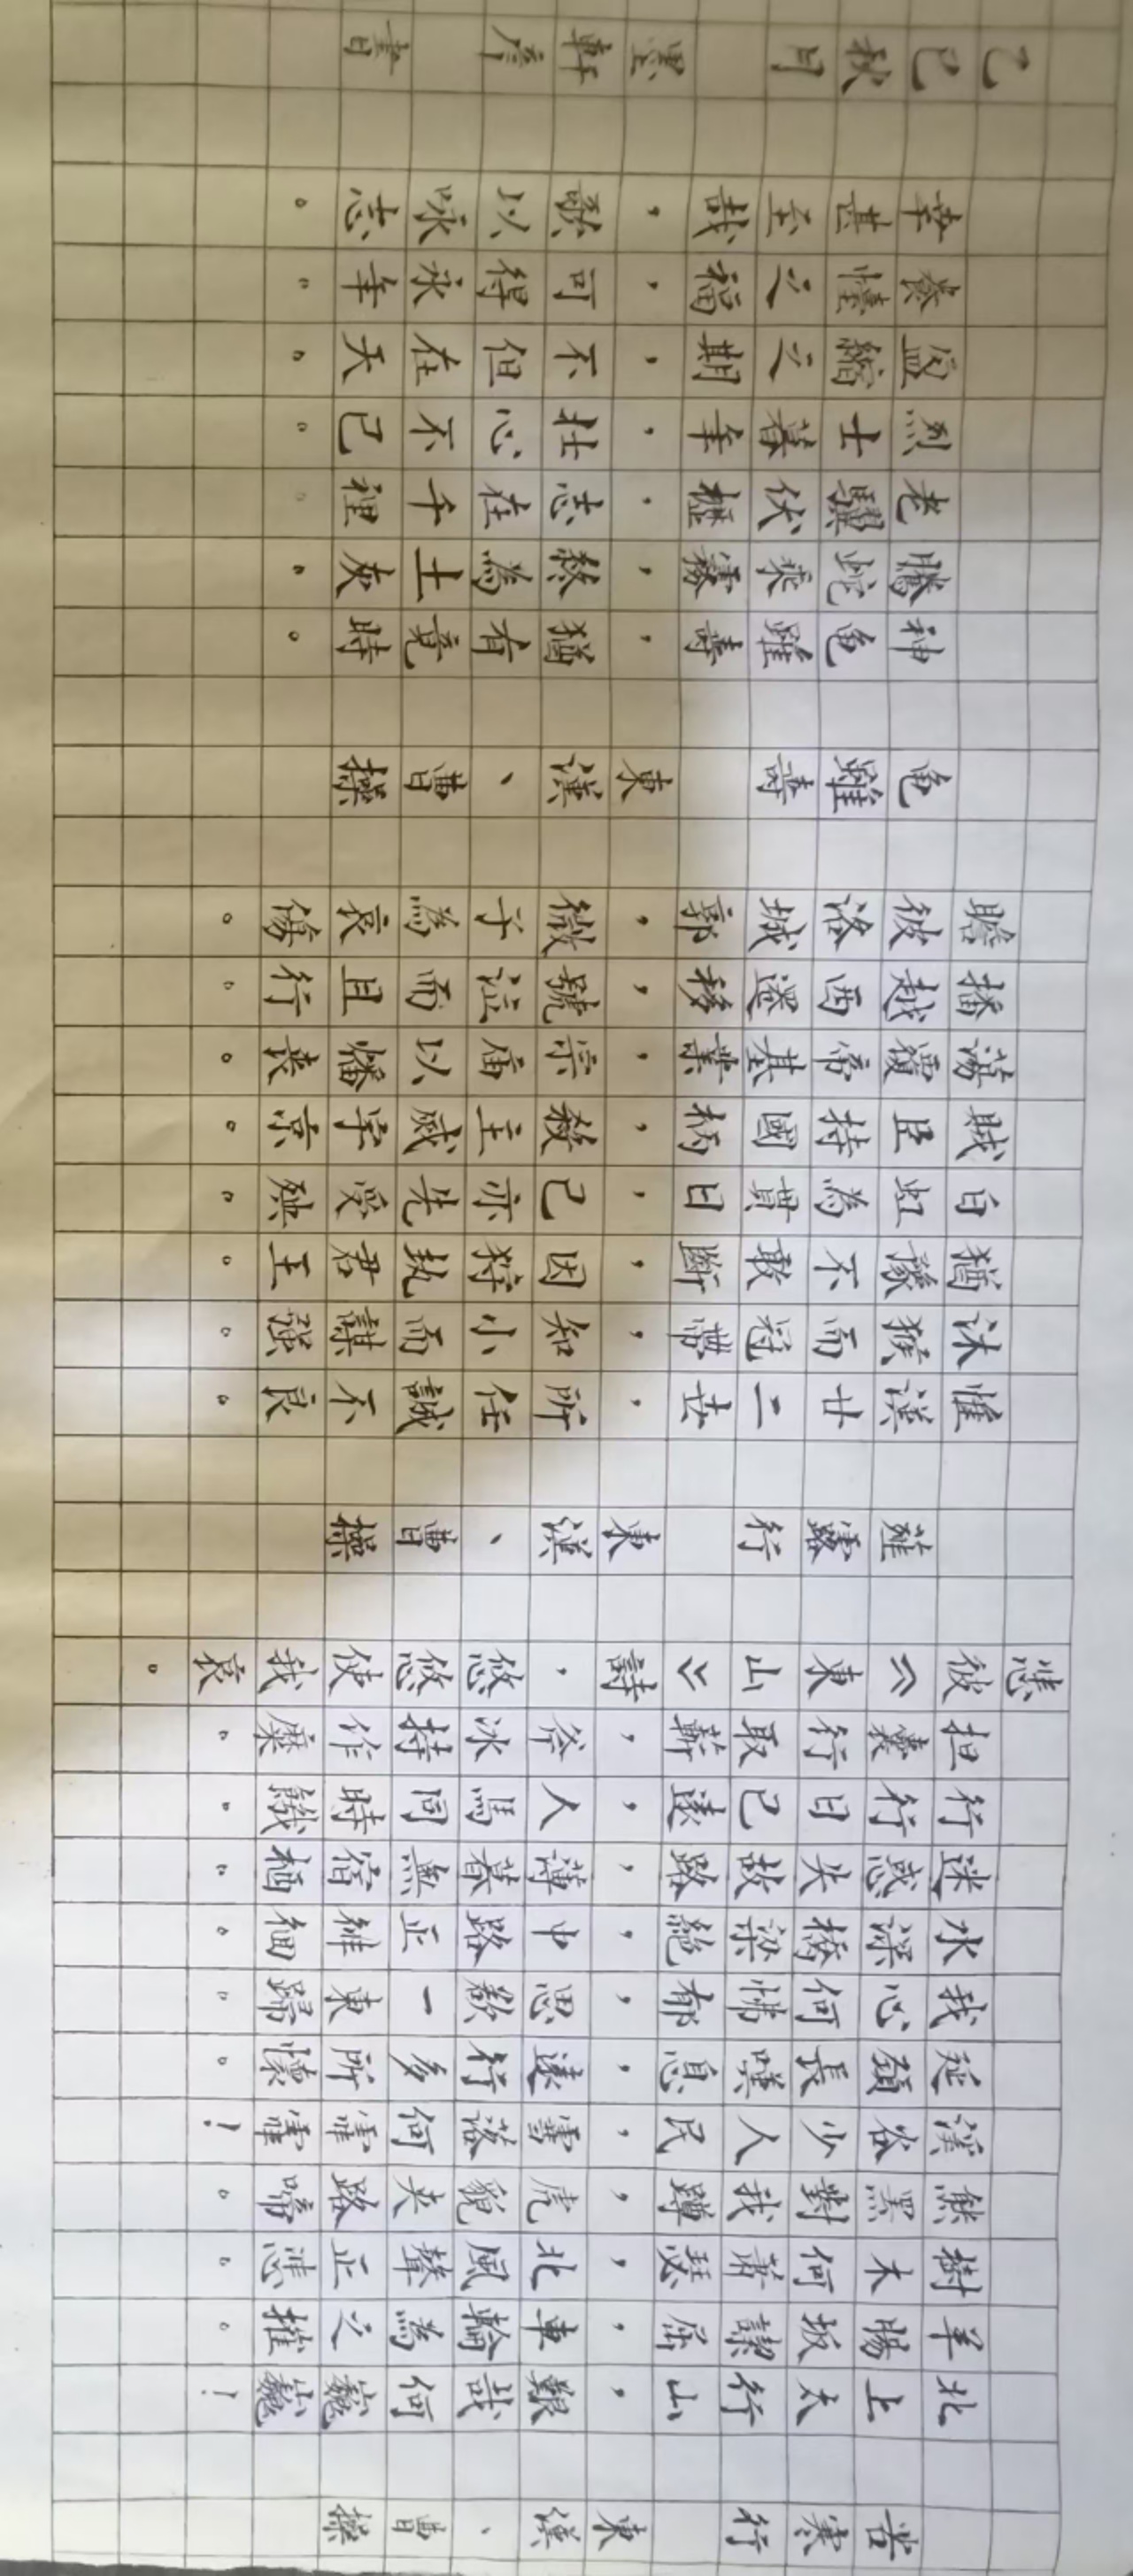 苦寒行 東漢、曹操
北上太行山，艱哉何巍巍！
羊腸坂詰屈，車輪為之摧。
樹木何蕭瑟，北風聲正悲。
熊黑對我蹲，虎貌夾路啼。
溪谷少人民，雪落何霏霏！
延頸長嘆息，遠行多所懷。
我心何怫郁，思欲一東歸。
水深橋梁絕，中路正徘徊。
迷惑失故路，薄暮無宿栖。
行行日已遠，人馬同時饑。
担囊行取薪，斧冰持作糜。
悲彼《東山》詩，悠悠使我哀。
薤露行 東漢、曹操
惟漢廿二世，所任誠不良。
沐猴而冠帶，知小而謀強。
猶豫不敢斷，因狩執君王。
白虹為貫日，己亦先受殃。
賊臣持國柄，殺主滅宇京。
蕩覆帝基業，宗庙以燔喪。
播越西遷移，號泣而且行。
瞻彼洛城郭，微子為哀傷。
龜雖壽 東漢、曹操
神龜雖壽，猶有竟時。
騰蛇乘霧，終為土灰。
老驥伏櫪，志在千裡。
烈士暮年，壯心不已。
盈縮之期，不但在天。
養怡之福，可得永年。
幸甚至哉，歌以咏志。
乙巳秋月 墨軒 書